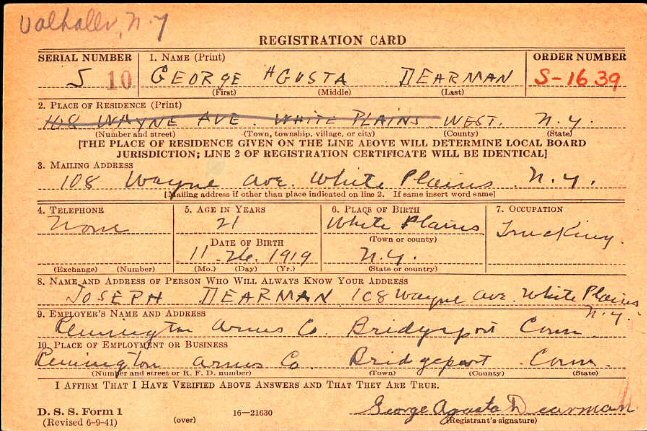 Valhalla, N.Y
REGISTRATION CARD
SERIAL NUMBER 1. NAME (Print) ORDER NUMBER
S 10 GEORGE AGUSTA DEARMAN S-1639
(First) (Middle) (Last)
2. PLACE OF RESIDENCE (Print)
108 WAYNE AVE. WHITE PLAINS. WEST. N.Y.
(Number and street) (Town, township, village, or city) (County) (State)
[THE PLACE OF RESIDENCE GIVEN ON THE LINE ABOVE WILL DETERMINE LOCAL BOARD
JURISDICTION; LINE 2 OF REGISTRATION CERTIFICATE WILL BE IDENTICAL]
3. MAILING ADDRESS
108 Wayne Ave. White Plains N.Y.
[Mailing address if other than place indicated on line 2. If same insert word same]
4. TELEPHONE 5. AGE IN YEARS 6. PLACE OF BIRTH 7. OCCUPATION
None 21 White Plains Trucking.
DATE OF BIRTH (Town or county)
11-26-1919 N.Y.
(Exchange) (Number) (Mo.) (Day) (Yr.) (State or country)
8. NAME AND ADDRESS OF PERSON WHO WILL ALWAYS KNOW YOUR ADDRESS
JOSEPH DEARMAN 108 Wayne Ave. White Plains
N.Y.
9. EMPLOYER'S NAME AND ADDRESS
Remington Arms Co. Bridgeport Conn.
10. PLACE OF EMPLOYMENT OR BUSINESS
Remington Arms Co. Bridgeport Conn.
(Number and street or R. F. D. number) (Town) (County) (State)
I AFFIRM THAT I HAVE VERIFIED ABOVE ANSWERS AND THAT THEY ARE TRUE.
D. S. S. Form 1
(Revised 6-9-41) (over) 16-21630 George Agusta Dearman
(Registrant's signature)